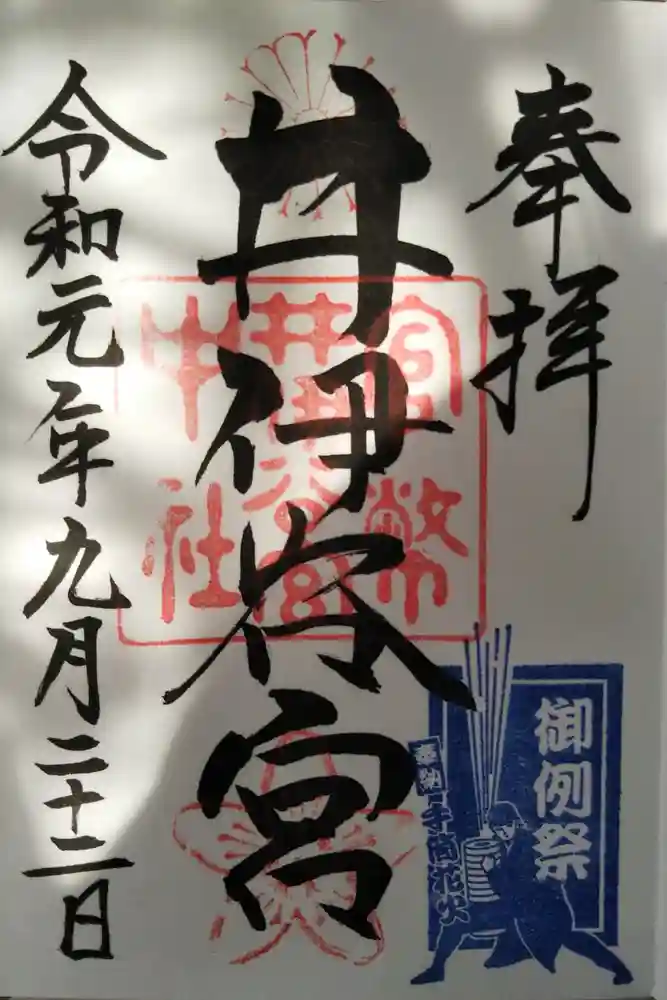 奉拝
井伊谷宮
官幣
井伊谷宮
中社
令和元年九月二十二日
御例祭
奉納
手筒花火